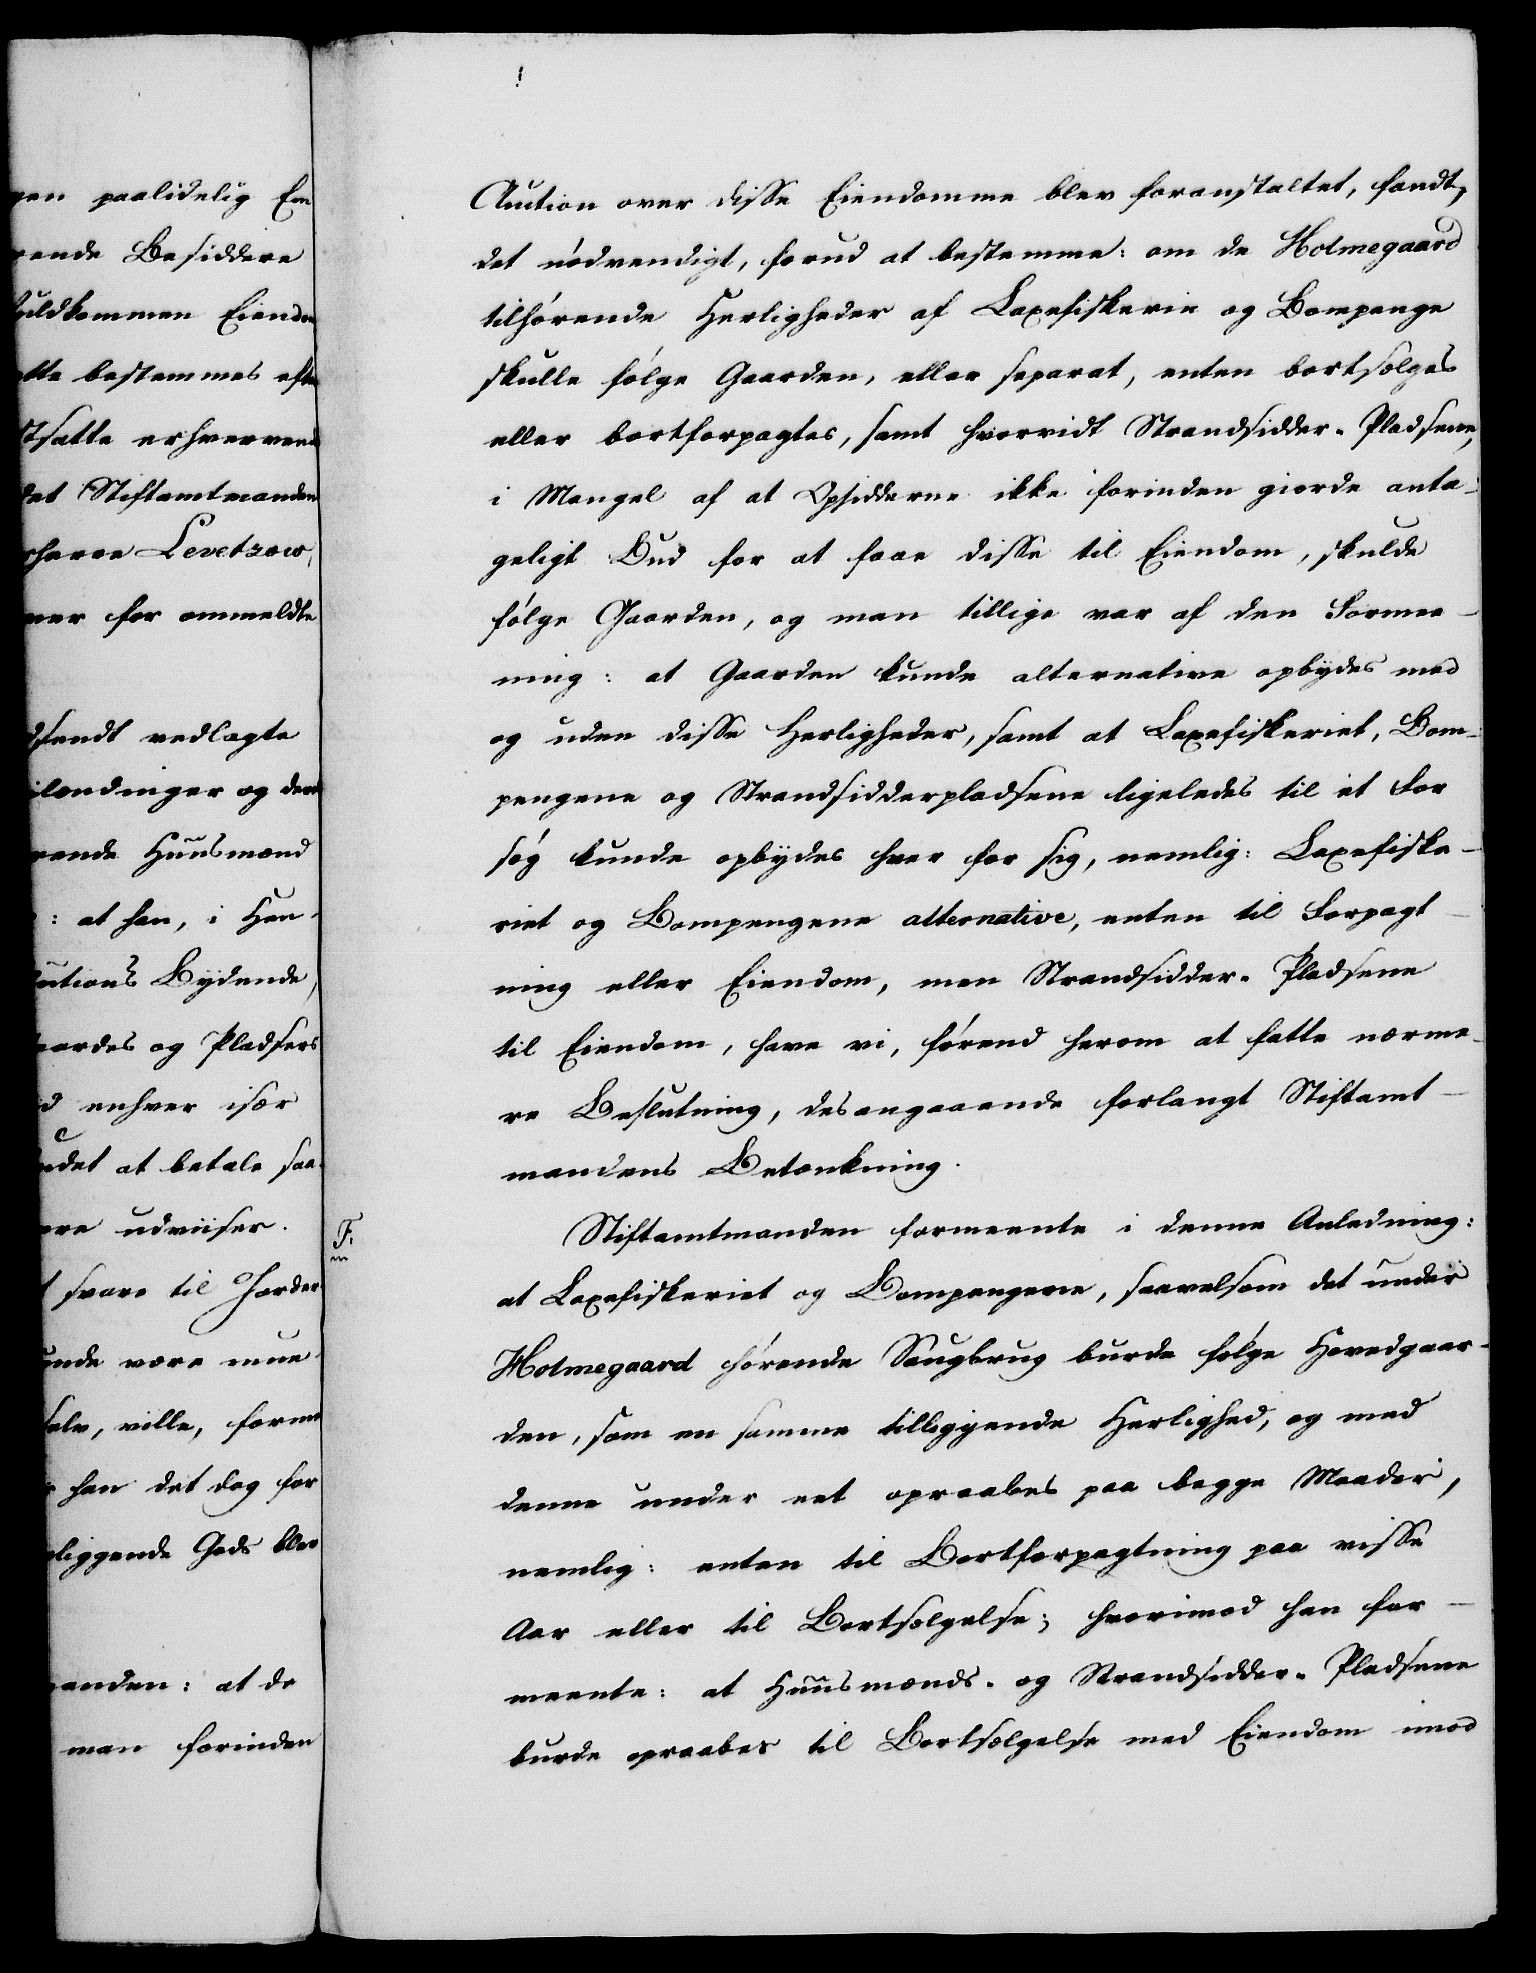 gen paalidelig Em
rende Besiddere
fuldkommen Eiendom
atte bestemmes efter
tsatte erhvervend
det Stiftamtmanden
rherre Levetzow,
mer for ommeldte
dsendt vedlagte
ilændinger og deres
rende Huusmænd
: at han, i Hen-
uctions Bydende,
aardes og Pladsers
d enhver især
ndet at betale saa-
ere udviiser.
t svare til Jorder
unde være mue-
selv, ville, forme
han det dog for
liggende Gods blev
anden: at de
man forinden
Auction over disse Eiendomme blev foranstaltet, fandt,
det nödvendigt, forud at bestemme: om de Holmegaard
tilhörende Herligheder af Laxefiskerie og Bompenge
skulle fölge Gaarden, eller separat, enten bortsælges
eller bortforpagtes, samt hvorvidt Strandsidder-Pladsene,
i Mangel af at Opsidderne ikke forinden giorde anta-
geligt Bud for at faae disse til Eiendom, skulde
fölge Gaarden, og man tillige var af den Formee-
ning: at Gaarden kunde alternative opbydes med
og uden disse Herligheder, samt at Laxefiskeriet, Bom-
pengene og Strandsidderpladsene ligeledes til et For
søg kunde opbydes hver for sig, nemlig: Laxefiske-
riet og Bompengene alternative, enten til Forpagt-
ning eller Eiendom, men Strandsidder-Pladsene
til Eiendom, have vi, förend herom at fatte nærme-
re Beslutning, desangaaende forlangt Stiftamt-
mandens Betænkning.
F.
Stiftamtmanden formeente i denne Anledning:
at Laxefiskeriet og Bompengene, saavelsom det under
Holmegaard hörende Saugbrug burde fölge Hovedgaar-
den, som en samme tilliggende Herlighed, og med
denne under eet opraabes paa begge Maader,
nemlig: enten til Bortforpagtning paa visse
Aar eller til Bortsælgelse; hvorimod han for-
meente: at Huusmænds- og Strandsidder-Pladsene
burde opraabes til Bortsælgelse med Eiendom imod